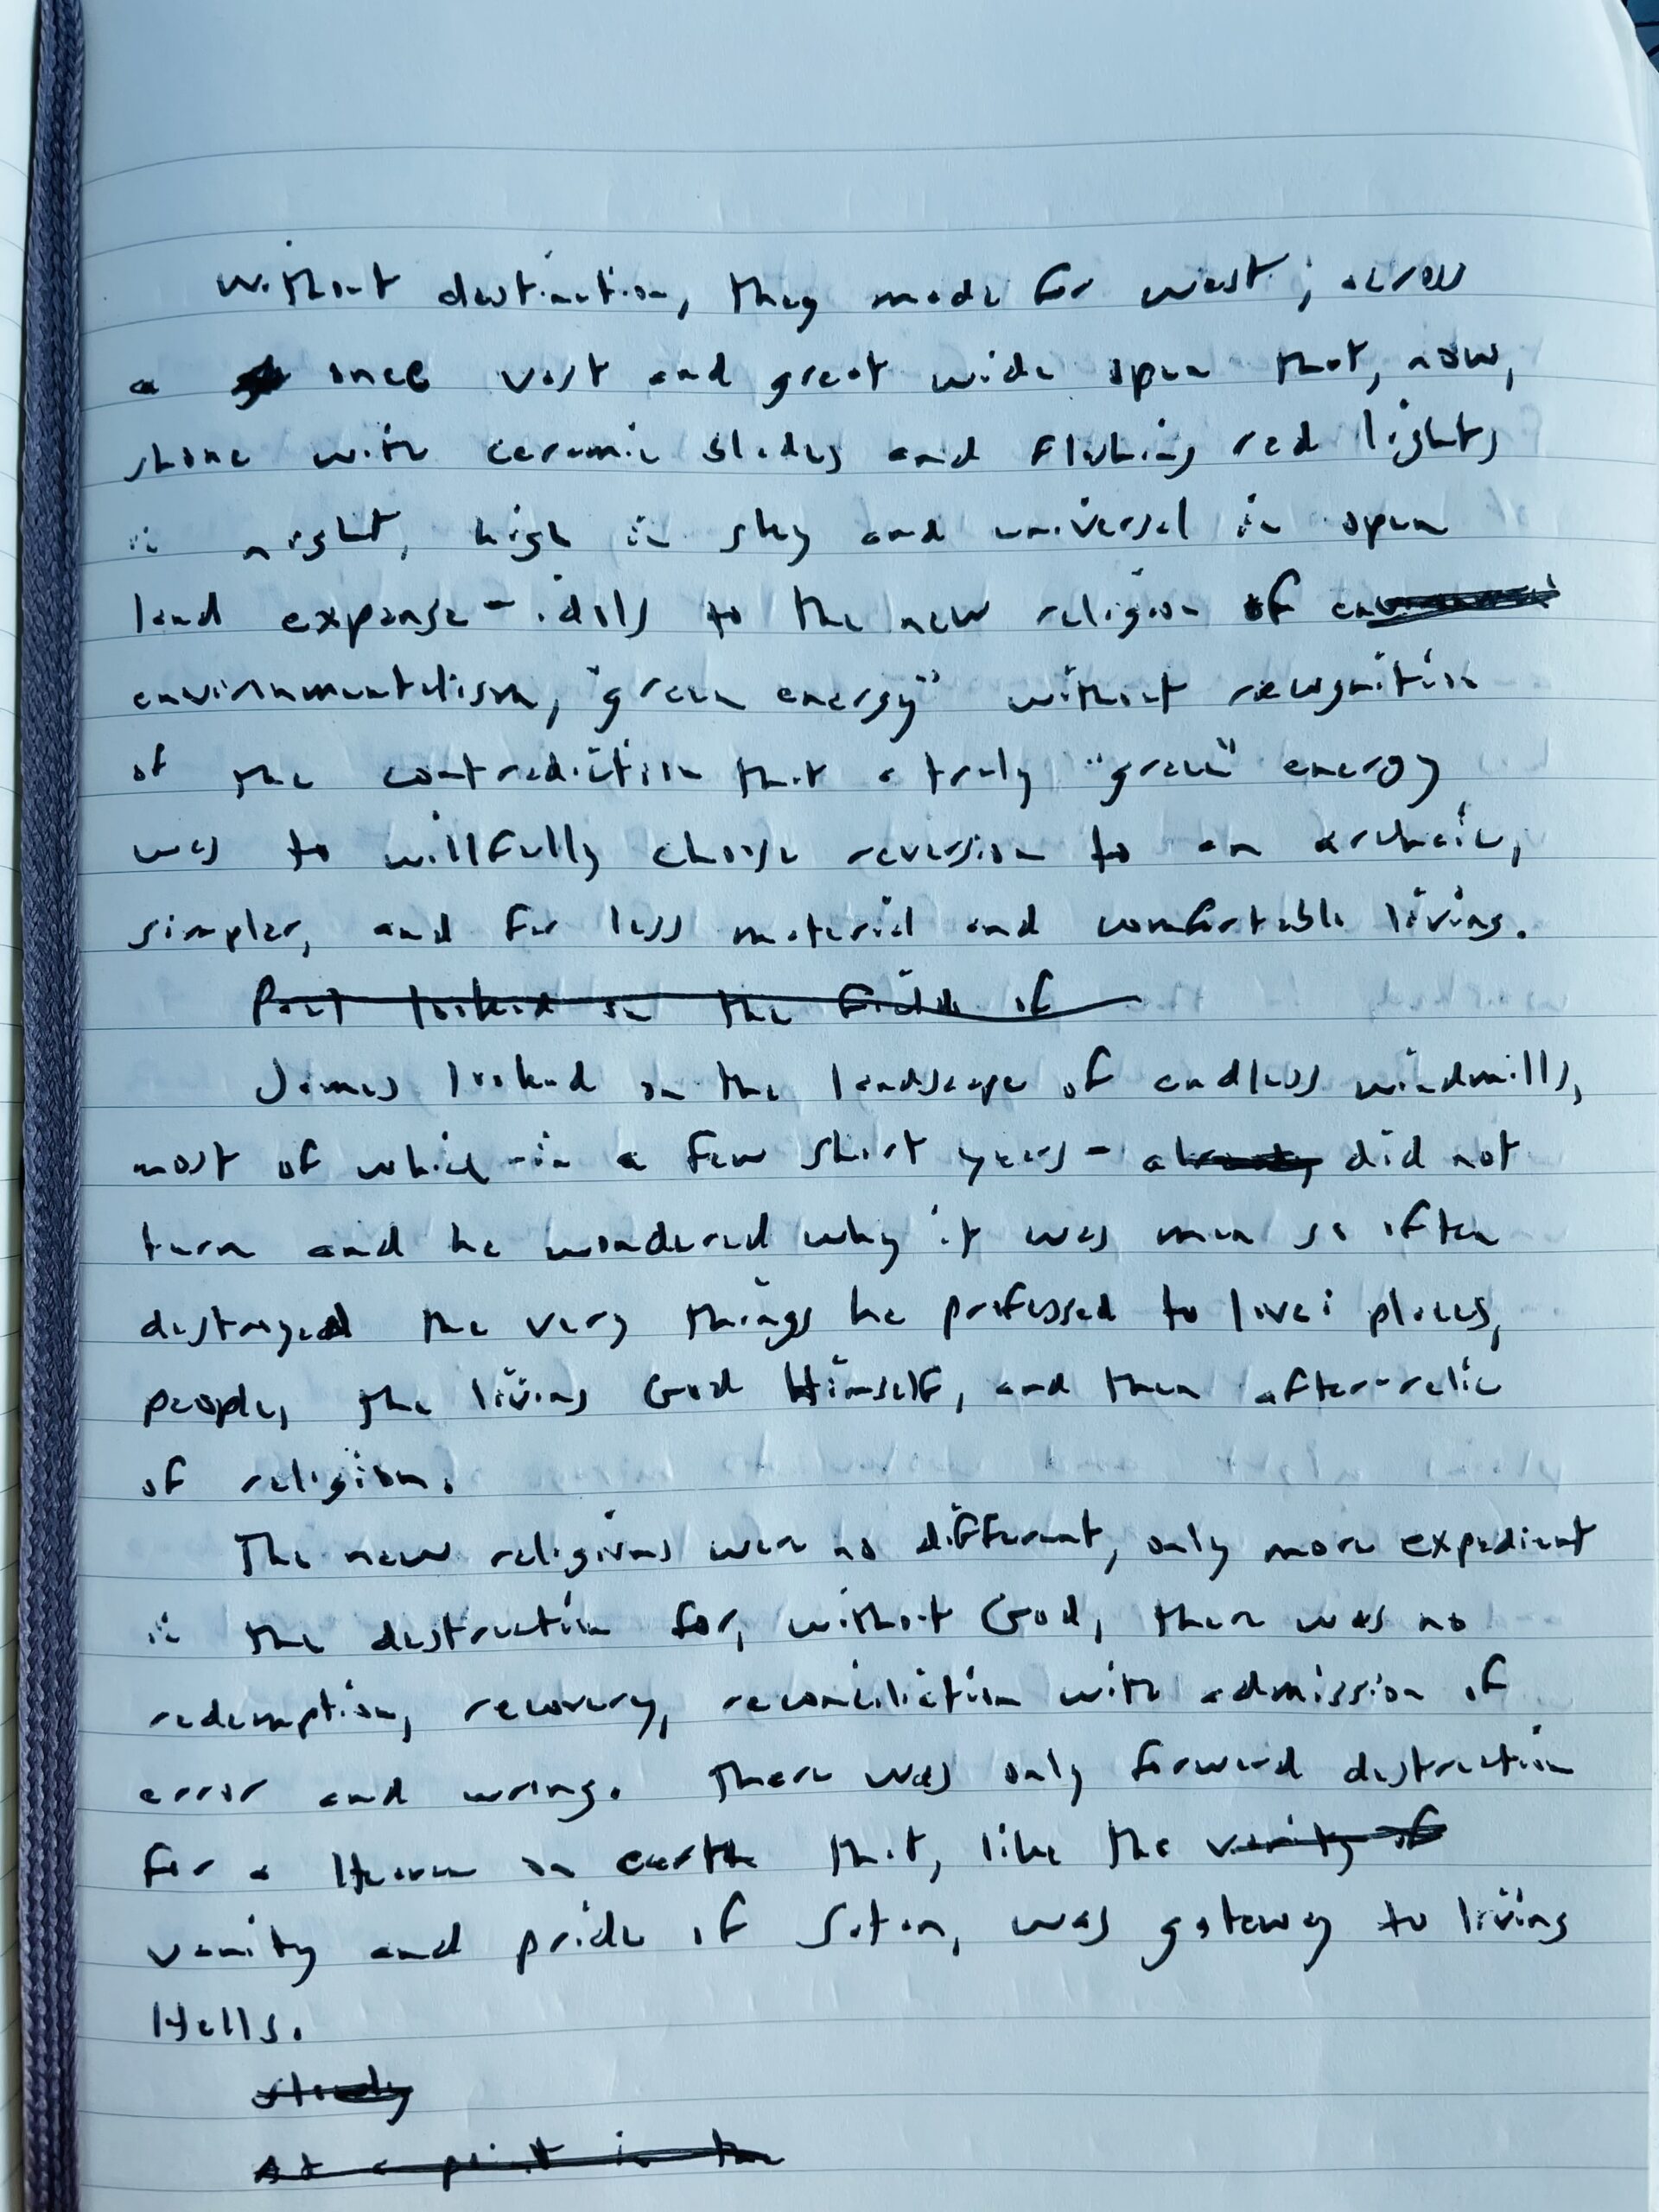 Without destination, they made for west; across
a once vast and great wide open that, now,
shone with ceramic blades and flashing red lights
in night, high in sky and universal in open
land expanse - idols to the new religion of
environmentalism, "green energy" without recognition
of the contradiction that a truly "green" energy
was to willfully choose reversion to an archaic,
simpler, and far less material and comfortable living.
Poet looked on the fields of
James looked on the landscape of endless windmills,
most of which - in a few short years - already did not
turn and he wondered why it was man so often
destroyed the very things he professed to love: places,
people, the living God Himself, and then after-relic
of religion.
The new religions were no different, only more expedient
in the destruction for, without God, there was no
redemption, recovery, reconciliation with admission of
error and wrong. There was only forward destruction
for a Heaven on earth that, like the vanity of
vanity and pride of Satan, was gateway to living
Hells.
At a point in the